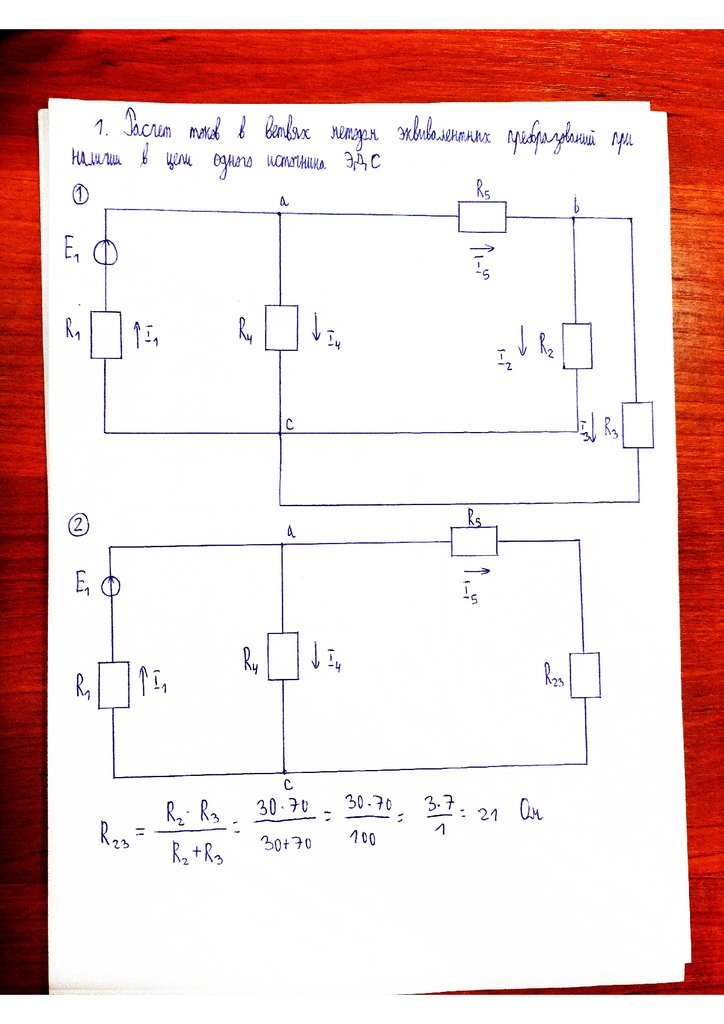 1. Расчет токов в ветвях методом эквивалентных преобразований при
наличии в цепи одного источника ЭДС
1
a
R5
b
E1
I5
R1
I1
R4
I4
I2
R2
I3
R3
c
2
a
R5
E1
I5
R1
I1
R4
I4
R23
c
R23 = R2 · R3 / R2 + R3 = 30·70 / 30+70 = 30·70 / 100 = 3·7 / 1 = 21 Ом